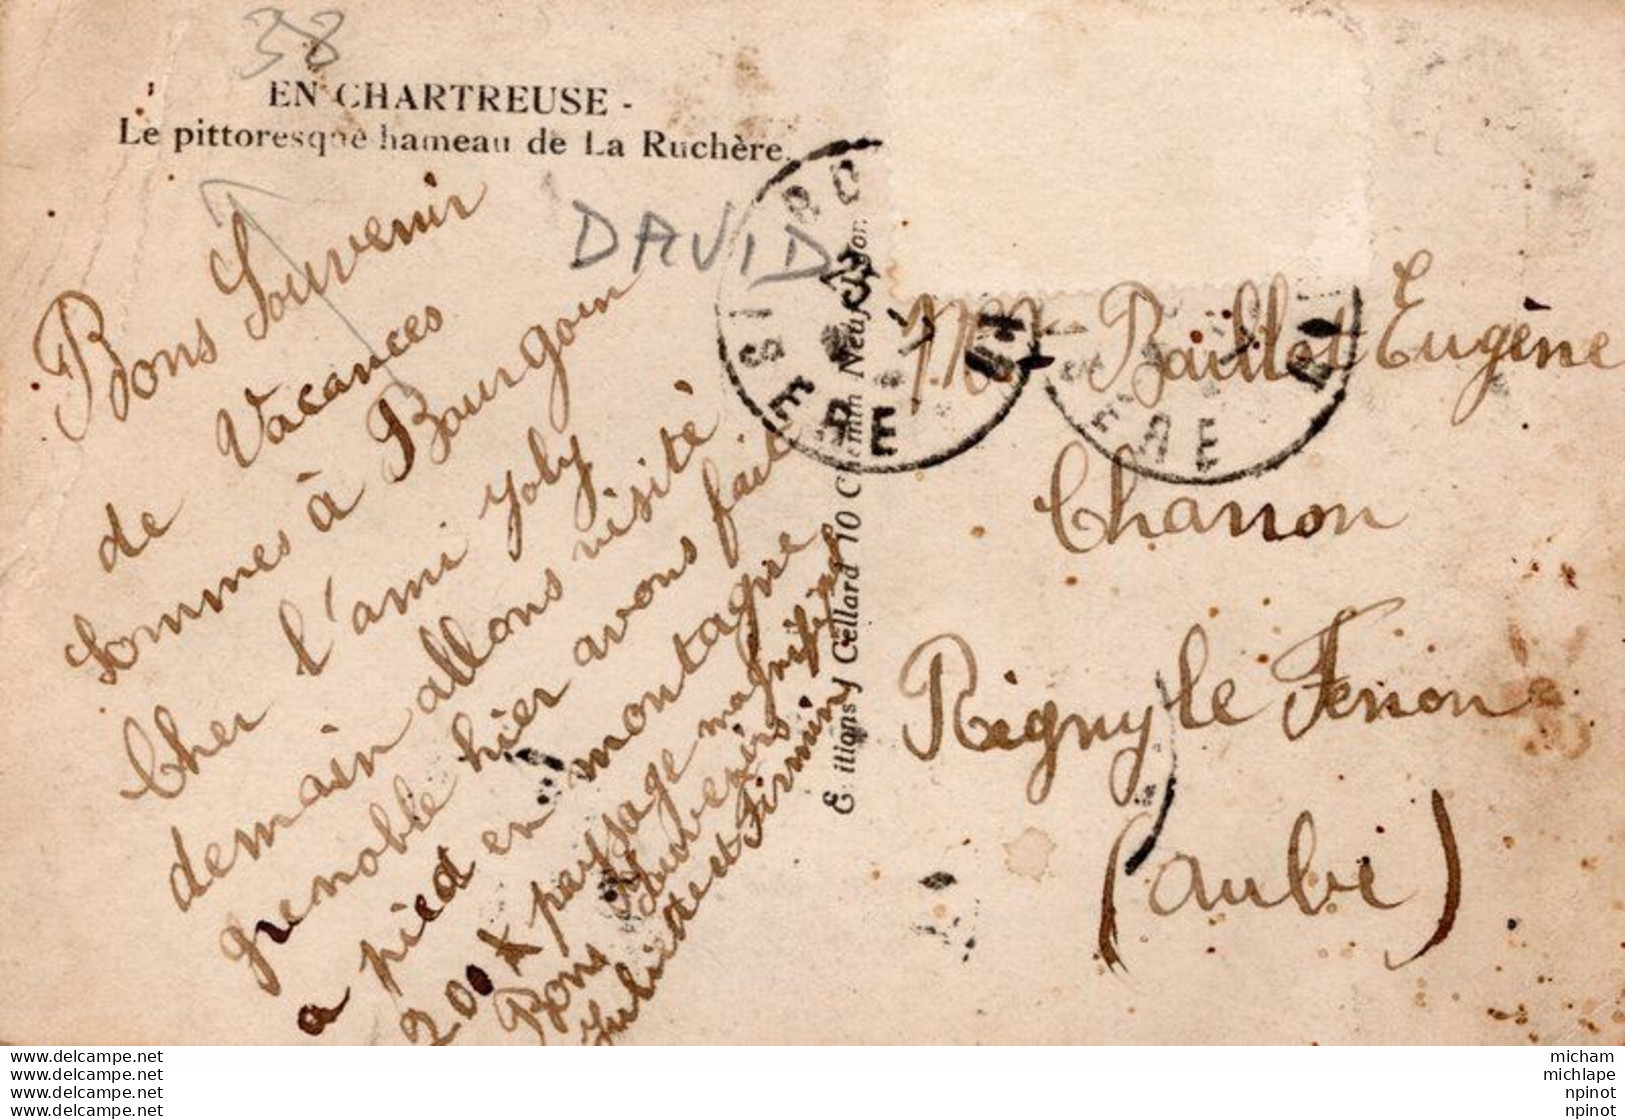 38
EN CHARTREUSE -
Le pittoresque hameau de La Ruchère.
DAVID
Bons Souvenir
de Vacances
Sommes à Bourgoin
Cher l'ami Joly
demain allons visité
grenoble hier avons fait
a pied en montagne
200 K paysage magnifique
Bons Souvenirs
Juliette et Firmin
Editions Cellard 10 Chemin Neuf
ISERE
ERE
Mr Baillet Eugène
Chanon
Rigny le Ferron
(aube)
delcampe.net
delcampe.net
delcampe.net
delcampe.net
micham
michlape
npinot
npinot